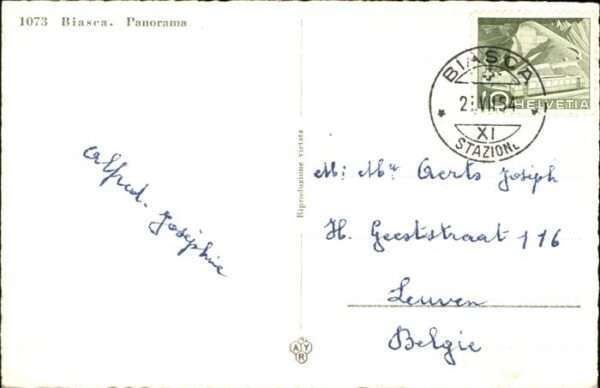 1073 Biasca. Panorama
10 HELVETIA
BIASCA
2 VII 54
XI
STAZIONE
Alfred. Joséphine
Riproduzione vietata
M: Mme Aerts Joseph
H. Geeststraat 116
Leuven
Belgie
A Y R